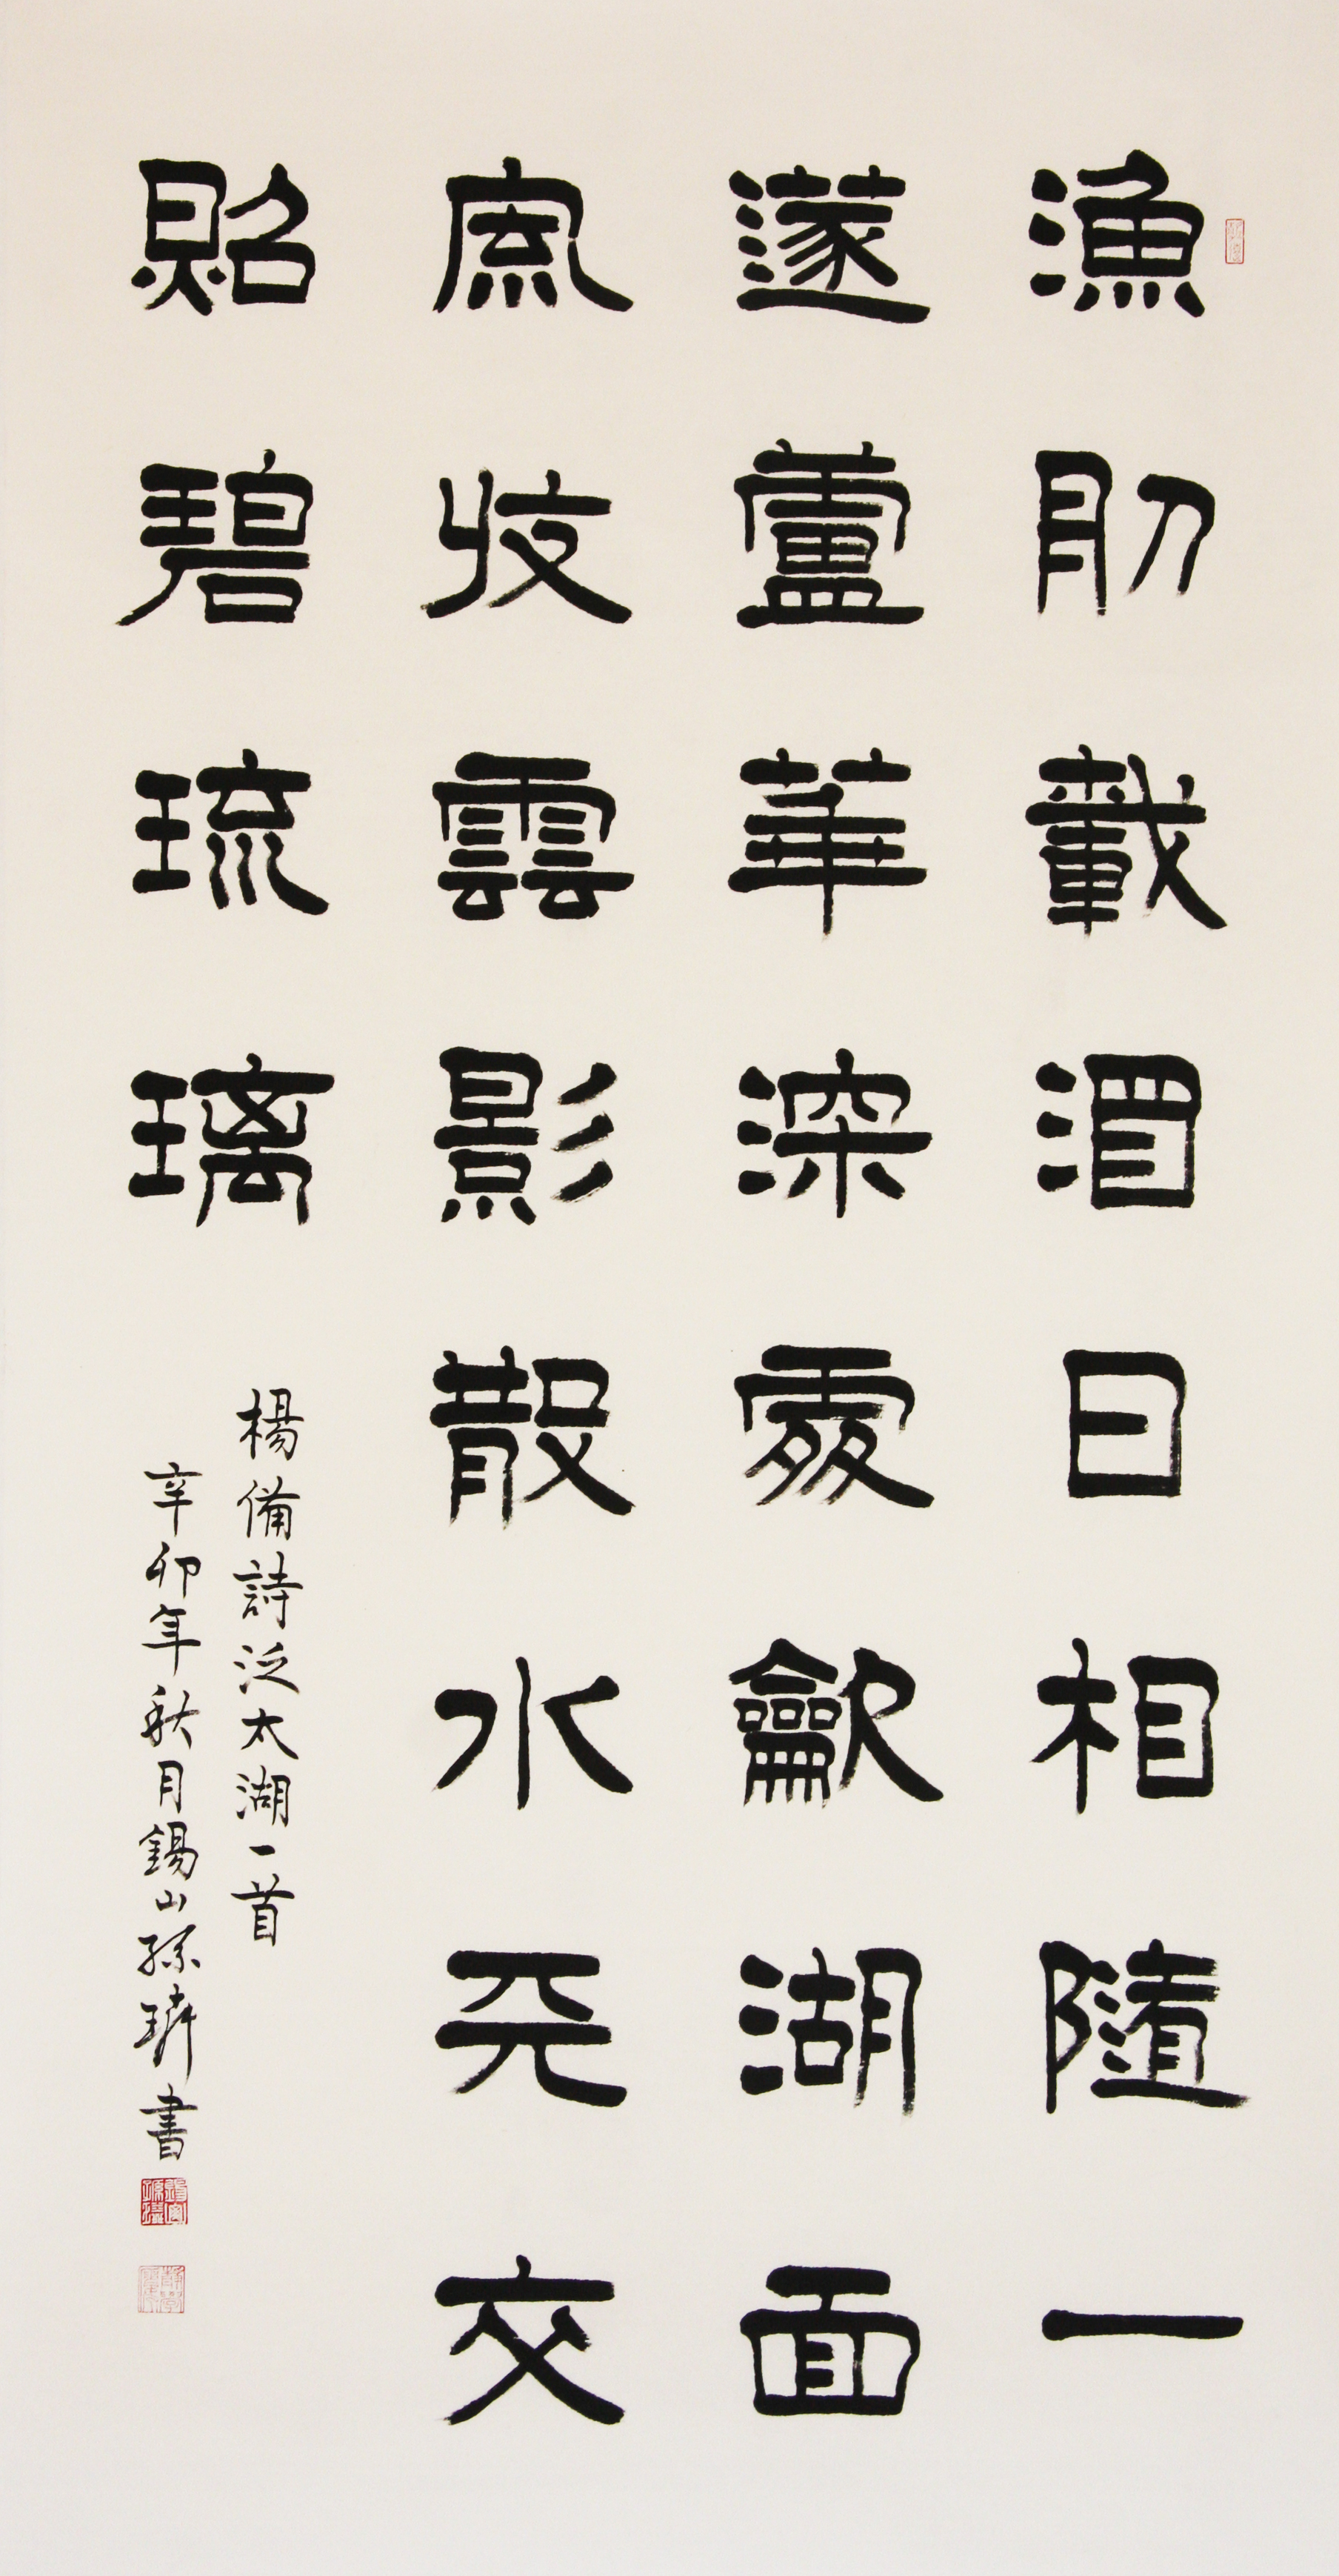 漁舠載酒日相隨一
篴蘆華深處龡湖面
風收雲影散水天交
照碧琉璃
楊備詩泛太湖一首
辛卯年秋月錫山孫書